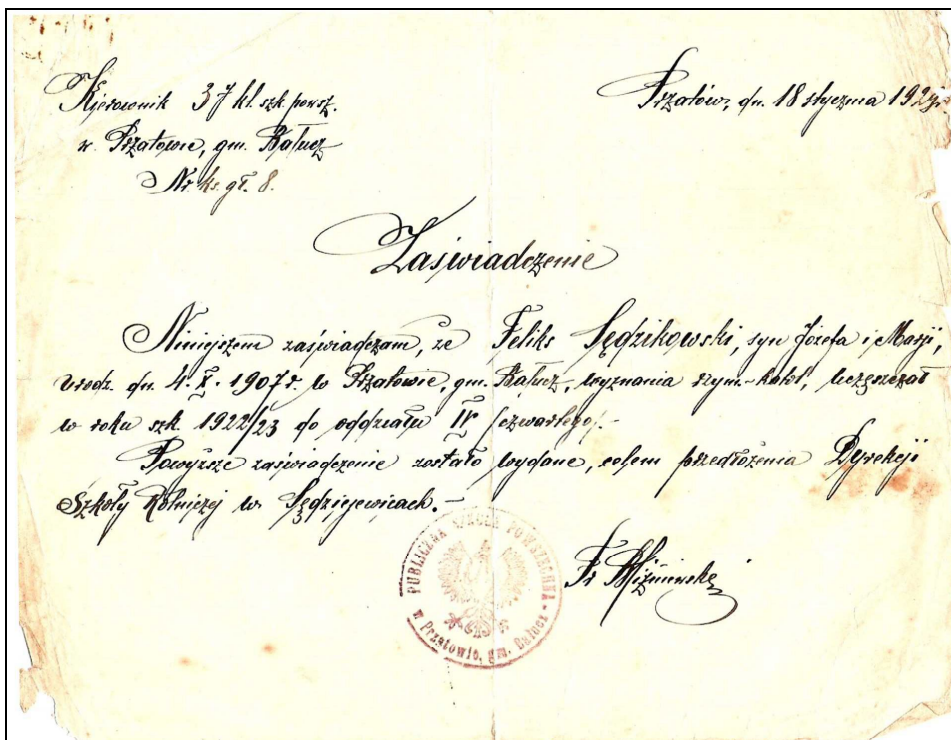 Kierownik 37 kl. szk. powsz.
w Przatowie, gm. Bałucz
Nr. ks. gł. 8.
Przatów, dn. 18 stycznia
Zaświadczenie
Niniejszem zaświadczam, że Feliks Sędzikowski, syn Józefa i Marji,
urodz. dn. 4.X.1907 r. w Przatowie, gm. Bałucz, wyznania rzym.-katol., uczęszczał
w roku szk. 1922/23 do oddziału IV /czwartego/.-
Powyższe zaświadczenie zostało wydane, celem przedłożenia Dyrekcji
Szkoły Rolniczej w Sędziejewicach.-
PUBLICZNA SZKOŁA POWSZECHNA
w Przatowie, gm. Bałucz
Fr.